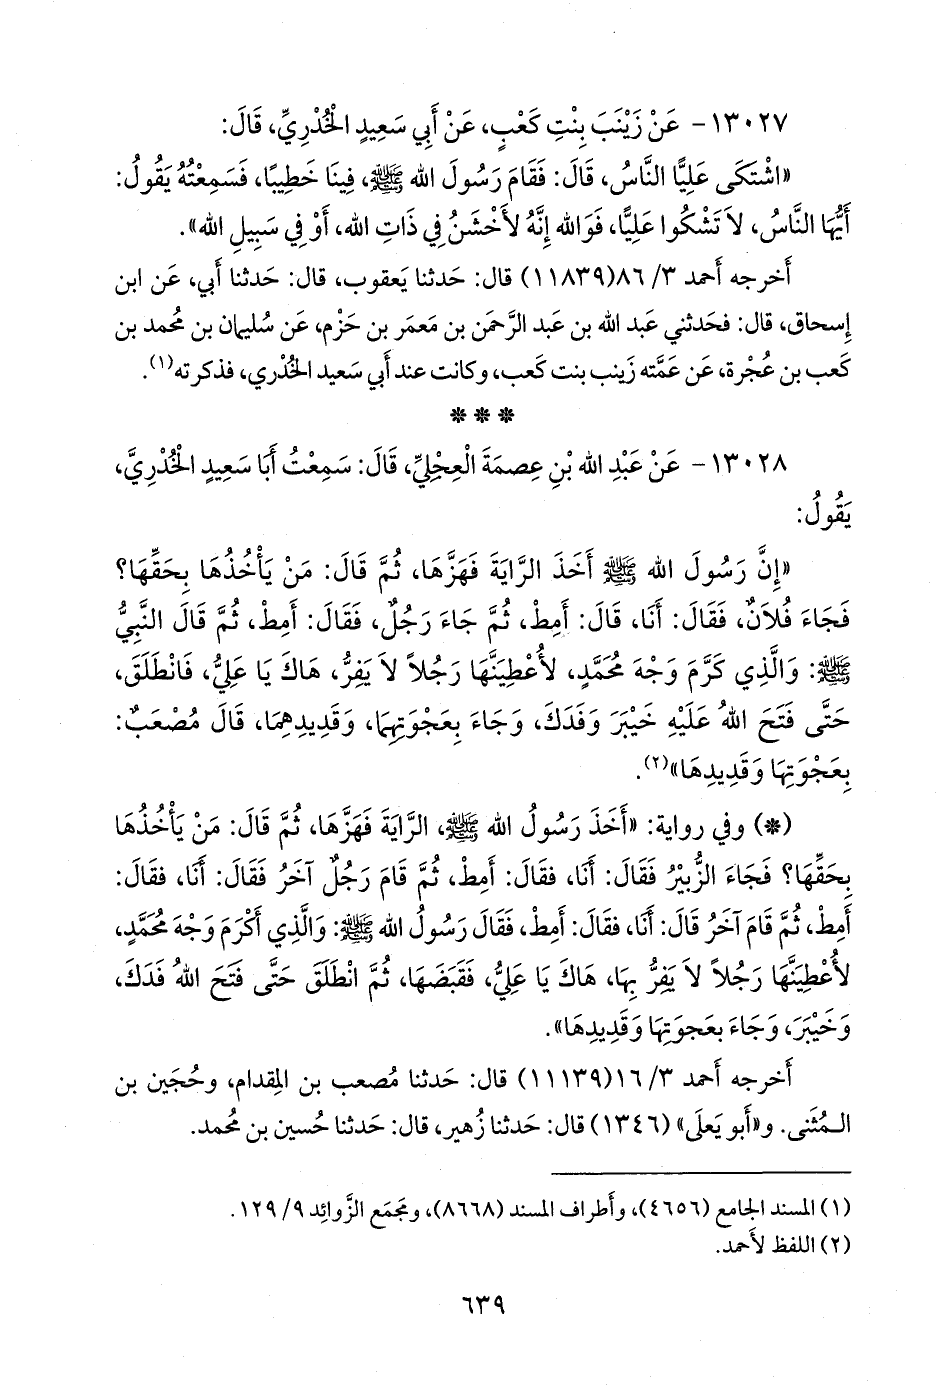 ١٣٠٢٧- عَنْ زَيْنَبَ بِنْتِ كَعْبٍ، عَنْ أَبِي سَعِيدٍ الْخُدْرِيِّ، قَالَ:
«اشْتَكَى عَلِيًّا النَّاسُ، قَالَ: فَقَامَ رَسُولَ الله ﷺ، فِينَا خَطِيبًا، فَسَمِعْتُهُ يَقُولُ:
أَيُّهَا النَّاسُ، لاَ تَشْكُوا عَلِيًّا، فَوَالله إِنَّهُ لأَخْشَنُ فِي ذَاتِ الله، أَوْ فِي سَبِيلِ الله».
أَخرجه أَحمد ٣/ ٨٦(١١٨٣٩) قال: حَدثنا يَعقوب، قال: حَدثنا أَبي، عَن ابن
إِسحاق، قال: فحَدثني عَبد الله بن عَبد الرَّحمَن بن مَعمَر بن حَزْم، عَن سُليمان بن مُحمد بن
كَعب بن عُجْرة، عَن عَمَّته زَينب بنت كَعب، وكانت عند أَبي سَعيد الخُدْري، فذكرته(١).
***
١٣٠٢٨- عَنْ عَبْدِ الله بْنِ عِصمَةَ الْعِجْلِيِّ، قَالَ: سَمِعْتُ أَبَا سَعِيدٍ الْخُدْرِيَّ،
يَقُولُ:
«إِنَّ رَسُولَ الله ﷺ أَخَذَ الرَّايَةَ فَهَزَّهَا، ثُمَّ قَالَ: مَنْ يَأْخُذُهَا بِحَقِّهَا؟
فَجَاءَ فُلاَنٌ، فَقَالَ: أَنَا، قَالَ: أَمِطْ، ثُمَّ جَاءَ رَجُلٌ، فَقَالَ: أَمِطْ، ثُمَّ قَالَ النَّبِيُّ
ﷺ: وَالَّذِي كَرَّمَ وَجْهَ مُحَمَّدٍ، لأُعْطِيَنَّهَا رَجُلاً لاَ يَفِرُّ، هَاكَ يَا عَلِيُّ، فَانْطَلَقَ،
حَتَّى فَتَحَ اللهُ عَلَيْهِ خَيْبَرَ وَفَدَكَ، وَجَاءَ بِعَجْوَتِهِمَا، وَقَدِيدِهِمَا، قَالَ مُصْعَبٌ:
بِعَجْوَتِهَا وَقَدِيدِهَا»(٢).
(*) وفي رواية: «أَخَذَ رَسُولُ الله ﷺ، الرَّايَةَ فَهَزَّهَا، ثُمَّ قَالَ: مَنْ يَأْخُذُهَا
بِحَقِّهَا؟ فَجَاءَ الزُّبيْرُ فَقَالَ: أَنَا، فقَالَ: أَمِطْ، ثُمَّ قَامَ رَجُلٌ آخَرُ فَقَالَ: أَنَا، فقَالَ:
أَمِطْ، ثُمَّ قَامَ آخَرُ قَالَ: أَنَا، فقَالَ: أَمِطْ، فَقَالَ رَسُولُ الله ﷺ: وَالَّذِي أَكْرَمَ وَجْهَ مُحَمَّدٍ،
لأُعْطِيَنَّهَا رَجُلاً لاَ يَفِرُّ بِهَا، هَاكَ يَا عَلِيُّ، فَقَبَضَهَا، ثُمَّ انْطَلَقَ حَتَّى فَتَحَ اللهُ فَدَكَ،
وَخَيْبَرَ، وَجَاءَ بعَجوَتِهَا وَقَدِيدِهَا».
أَخرجه أَحمد ٣/ ١٦(١١١٣٩) قال: حَدثنا مُصعب بن المِقدام، وحُجَين بن
الـمُثَنى. و«أَبو يَعلَى» (١٣٤٦) قال: حَدثنا زُهير، قال: حَدثنا حُسين بن مُحمد.
(١) المسند الجامع (٤٦٥٦)، وأَطراف المسند (٨٦٦٨)، ومَجمَع الزَّوائِد ٩/ ١٢٩.
(٢) اللفظ لأَحمد.
٦٣٩